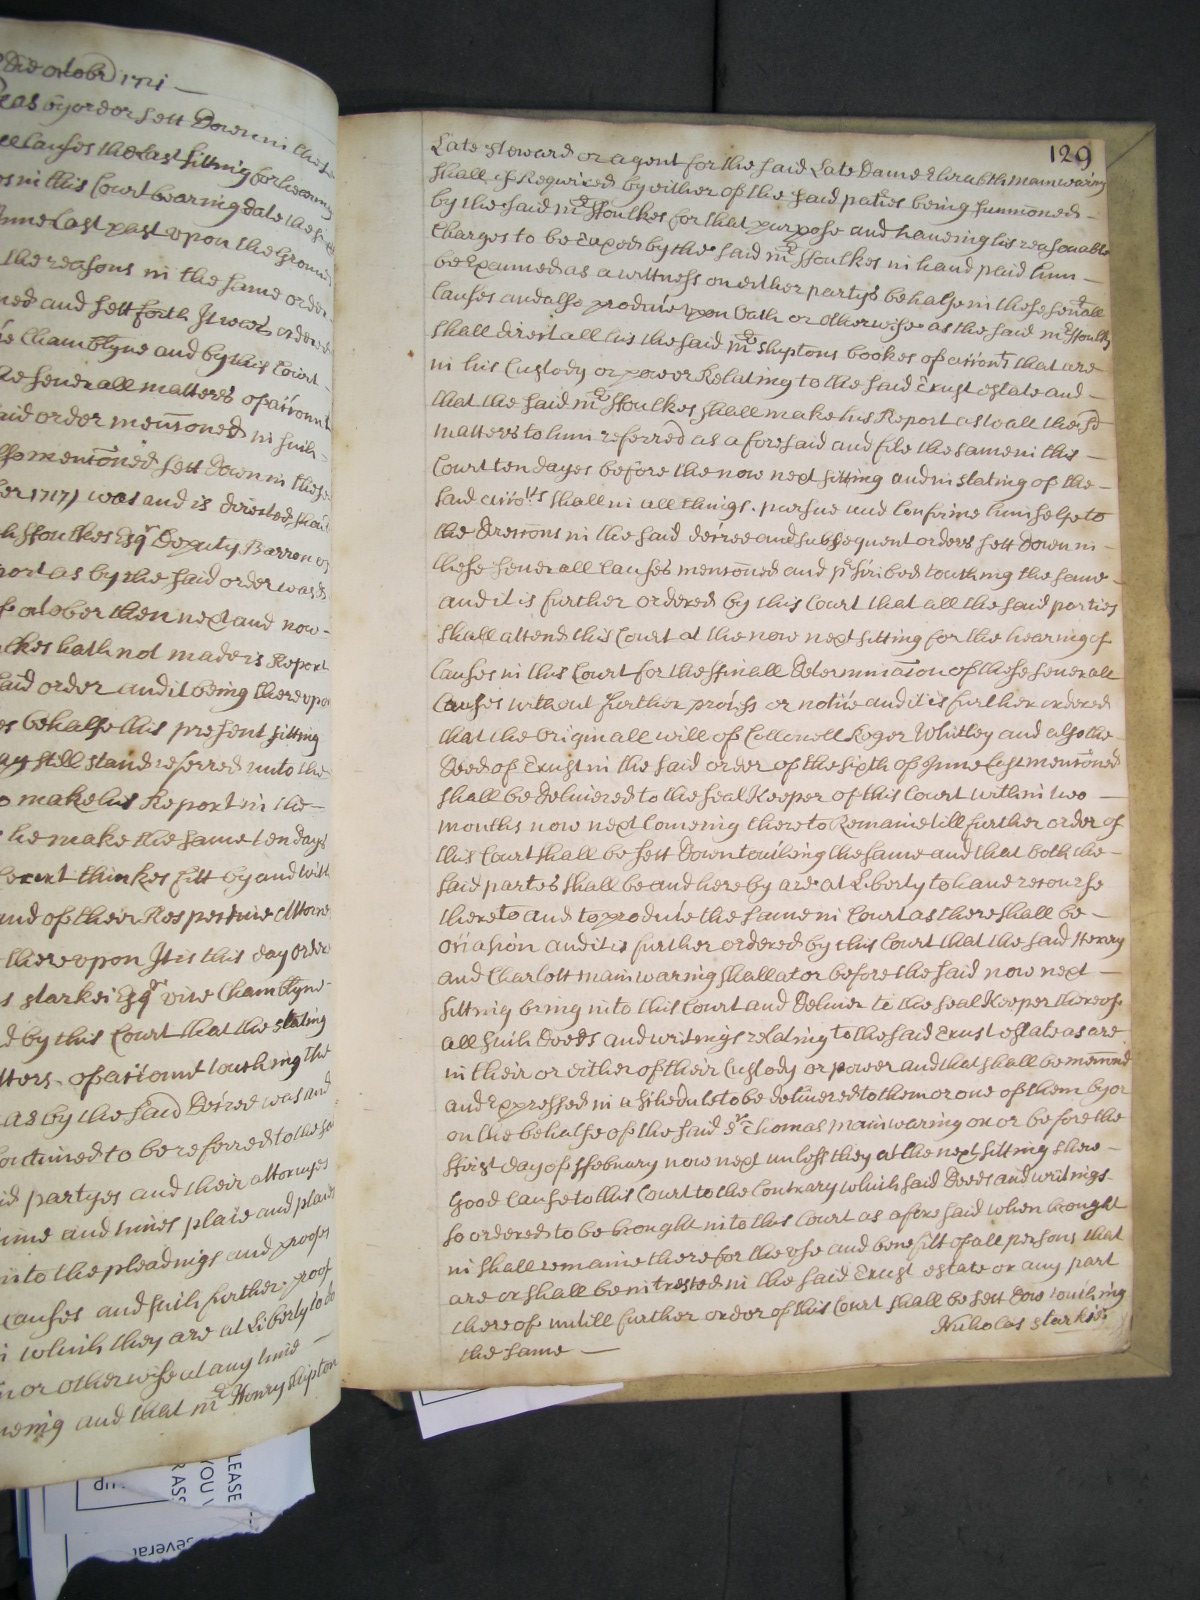 Die Octobr 1721
eas by order sett Down in these
causes the last sitting for heareing
es in this Court bearing date the six
June last past upon the grounds
the reasons in the same order
ned and sett forth It was ordered
Chamblyne and by this Court
the severall matters of accompt
said order menconed in such
menconed sett down in these
ber 1717) was and is directed, shall
ffoulkes Esqr Deputy Barron of
port as by the said order was
of october then next and now
lkes hath not made is Report
said order and it being thereupon
es behalfe this present sitting
ay still stand referred unto the
o make his Report in the
he make the same ten days
Court thinkes fitt by and with
and of their Respective Attorne
thereupon It is this day ordere
s Starkei Esqr vice Chamblyne
d by this Court that the stating
tters of accompt touching the
as by the said Decree was and
ontinued to be referred to the sd
id partyes and their attorneys
time and times place and places
into the pleadings and proofes
Causes and such further proof
which they are at Liberty to do
or otherwise at any time
and that mr Henry Shipton
129
Late Steward or agent for the said Late Dame Elizabeth Mainwaring
Shall if Required by either of the said parties being sumoned
by the said mr ffoulkes for that purpose and haveing his reasonable
Charges to be Taxed by the said mr ffoulkes in hand paid him
be Examined as a wittness on either partys behalfe in these severall
Causes and allso produce upon Oath or otherwise as the said mr ffoulkes
Shall direct all his the said mr Shiptons bookes of accots that are
in his Custody or power Relating to the said Trust estate and
that the said mr ffoulkes shall make his Report as to all the sd
matters to him referred as aforesaid and file the same in this
Court ten dayes before the now next sitting and in stating of the
said accots shall in all things pursue and Conforme himselfe to
the Direcons in the said decree and subsequent orders sett down in
these severall Causes menconed and pscribed touching the same
and it is further ordered by this Court that all the said parties
Shall attend this Court at the now next sitting for the hearing of
Causes in this Court for the ffinall Determinacon of these severall
Causes without further process or notice and it is further ordered
that the Originall will of Collonell Roger Whitley and also the
Deed of Trust in the said order of the sixth of June last menconed
shall be delivered to the Seal Keeper of this Court within two
months now next Comeing there to Remaine till further order of
this Court shall be sett Down touching the same and that both the
said parties shall be and hereby are at Liberty to have recourse
thereto and to produce the same in Court as there shall be
occasion and it is further ordered by this Court that the said Henry
and Charlott mainwaring shall at or before the said now next
sitting bring into this Court and Deliver to the Seal Keeper thereof
all such Deeds and writings relating to the said Trust estate as are
in their or either of their Custody or power and that shall be menconed
and Expressed in a schedule to be delivered to them or one of them by or
on the behalfe of the said Sr Thomas Mainwaring on or before the
ffirst day of ffebuary now next unless they at the next sitting shew
Good Cause to this Court to the Contrary which said Deeds and writings
so ordered to be brought into this Court as aforesaid when brought
in shall remaine there for the use and benefitt of all persons that
are or shall be intrested in the said Trust estate or any part
thereof untill further order of this Court shall be sett Dow touching
the same
Nicholas Starkie
LEASE
YOU
R ASS
up
several